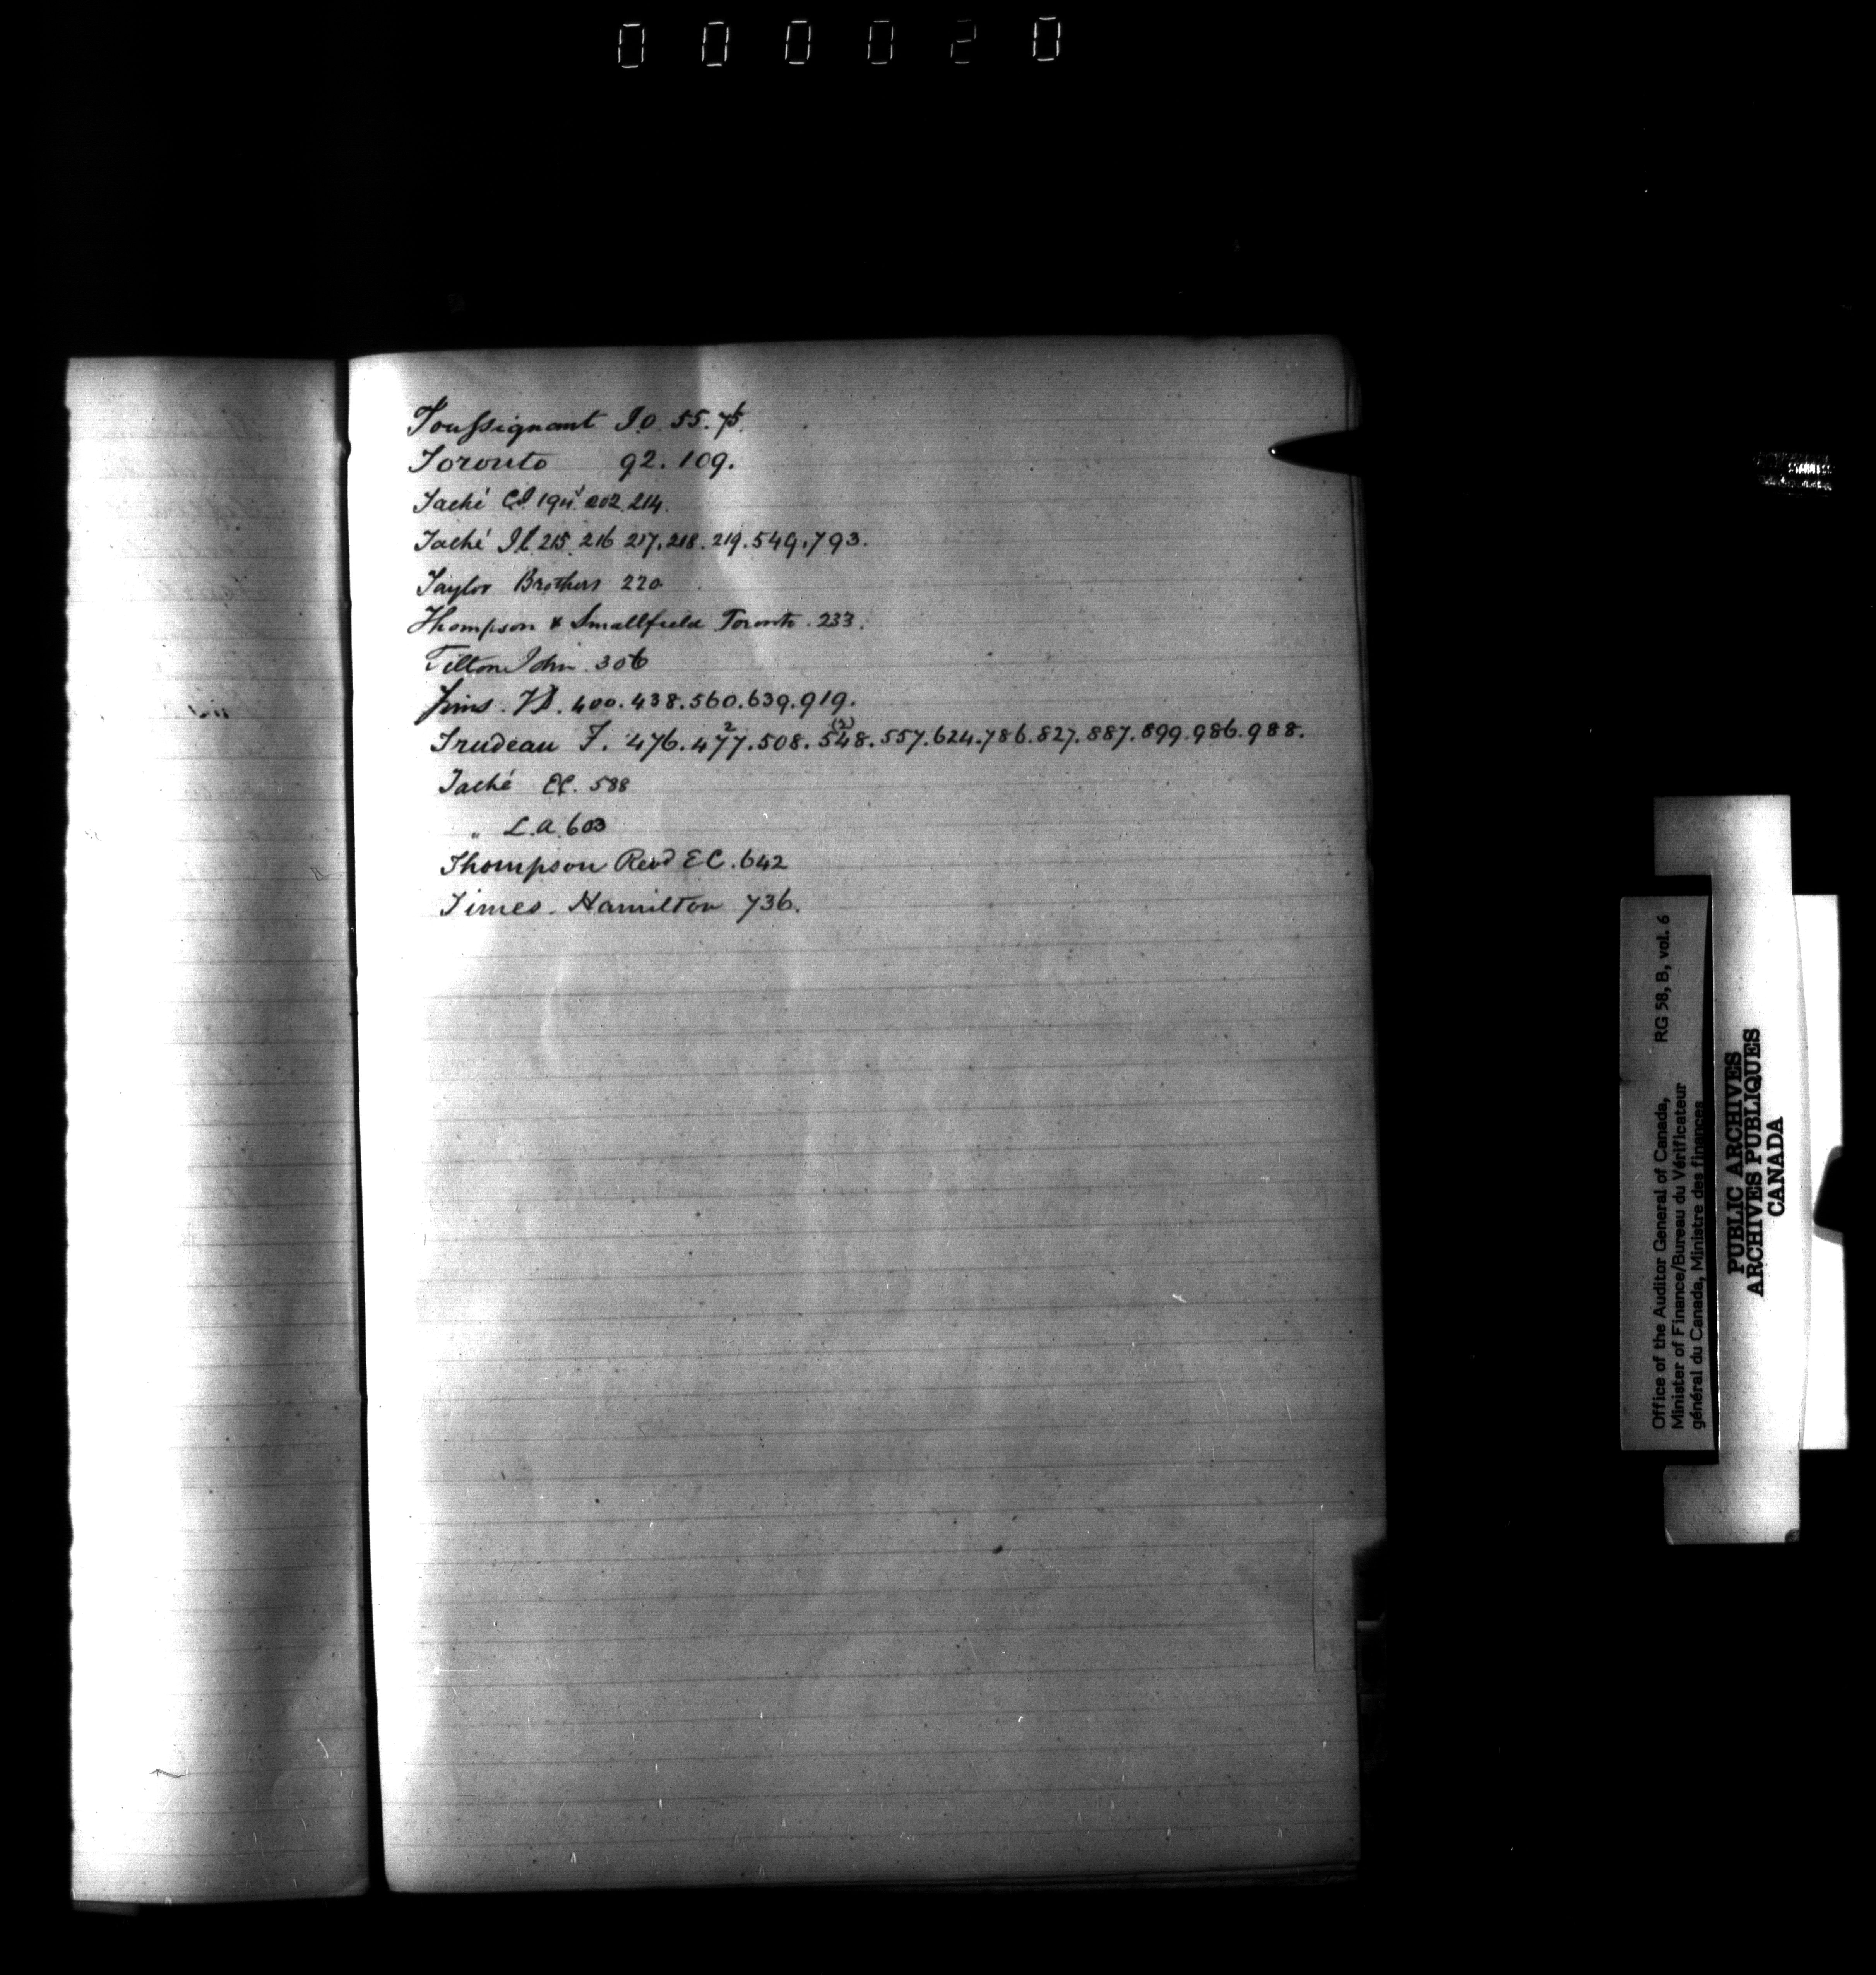 000020
Toussignant J.O. 55. 75.
Toronto 92. 109.
Taché 194. 202. 214.
Taché J.C. 215. 216 217. 218. 219. 549. 793.
Taylor Brothers 220
Thompson & Smallfield Toronto. 233.
Tilton John. 306
Tims. T.D. 400. 438. 560. 639. 919.
Trudeau T. 476. 477.² 508. 548.⁽²⁾ 557. 624. 786. 827. 887. 899. 986. 988.
Taché E.P. 588
" L.A. 603
Thompson Revd E C. 642
Times. Hamilton 736.
Office of the Auditor General of Canada, RG 58, B, vol. 6
Minister of Finance/Bureau du Vérificateur
général du Canada, Ministre des finances
PUBLIC ARCHIVES
ARCHIVES PUBLIQUES
CANADA